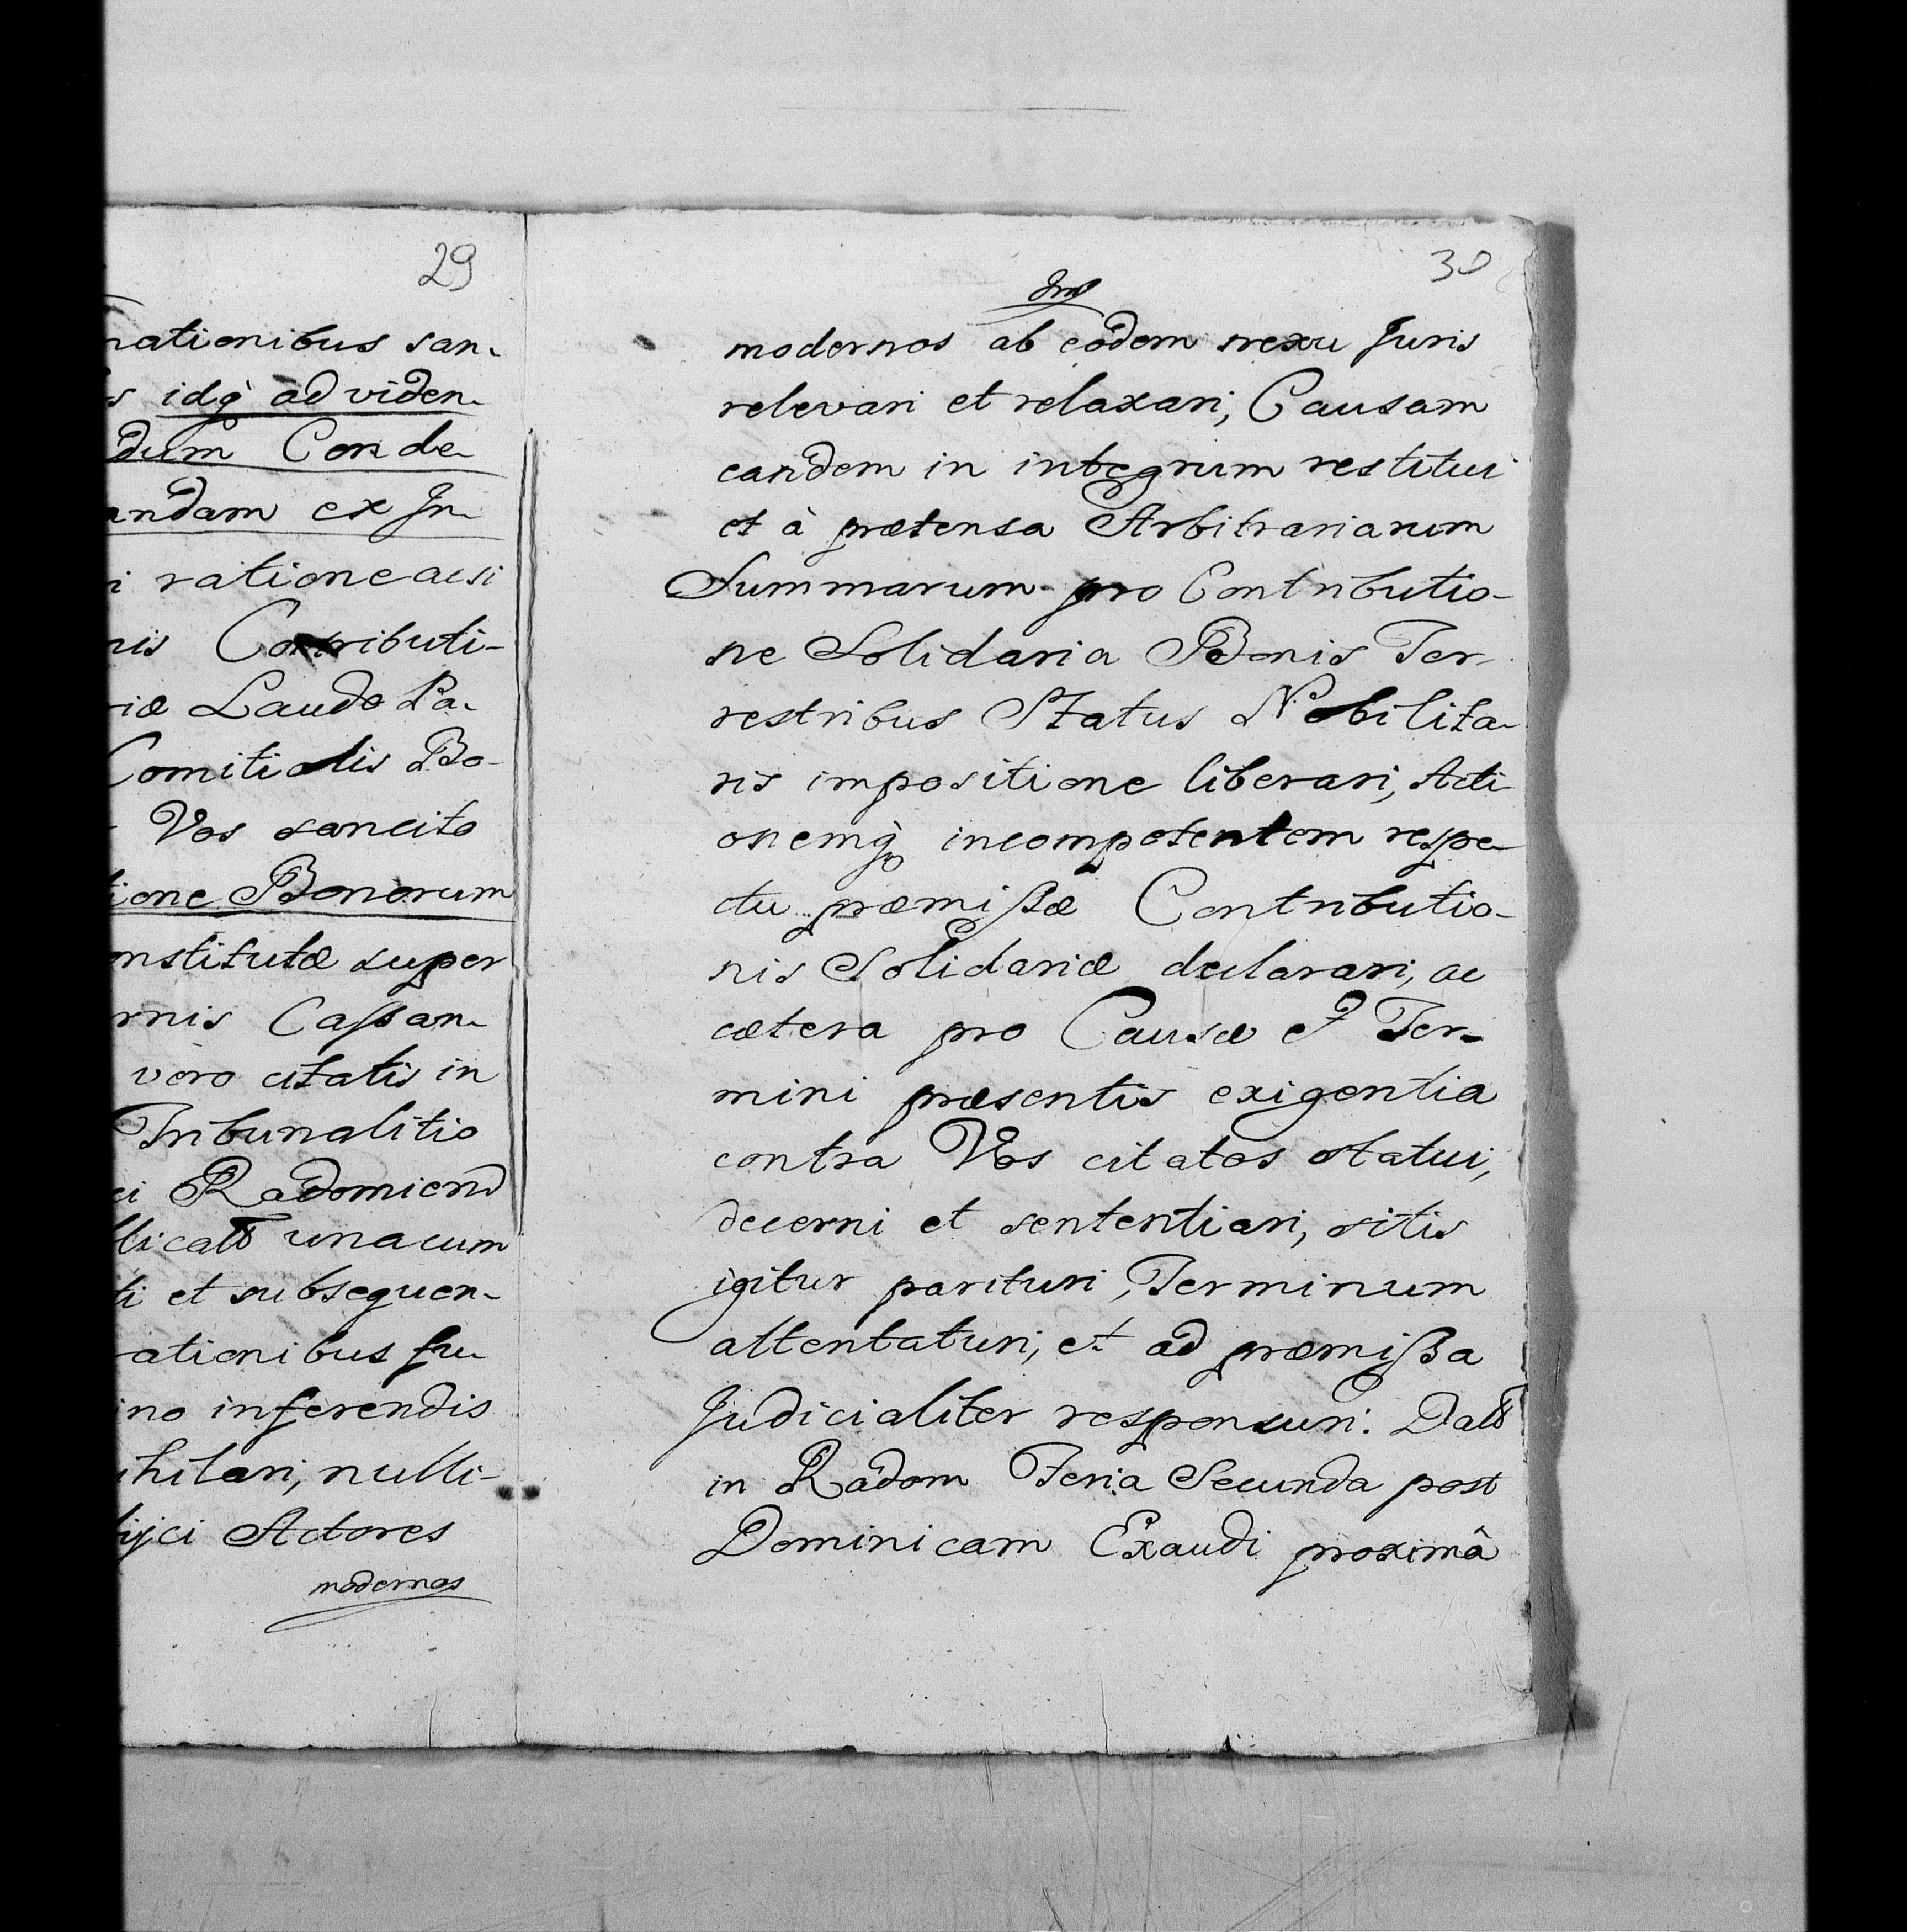 29
nationibus san-
s idq̀ ad viden-
dum Conde-
andam ex In-
i ratione acsi
nis Contributi-
riæ Laudo Pa-
Comitialis Bo-
Vos sancito
tione Bonorum
onstitutæ super
rnis Cassan-
vero citatis in
Tribunalitio
ci Radomiens
licats unacum
ti et subsequen-
ationibus fu-
ino inferendis
ihilari, nulli-
ijci Actores
modernos
30
modernos ab eodem nexu Juris
relevari et relaxari, Causam
eandem in integrum restitui
et à prætensa Arbitrariarum
Summarum pro Contributio-
ne Solidaria Bonis Ter-
restribus Status Nobilita-
ris impositione liberari, Acti
onemq̀ incompetentem respe-
ctu præmissæ Contributio-
nis Solidariæ declarari, ac
cætera pro Causæ et Ter-
mini præsentis exigentia
contra Vos citatos statui,
decerni et sententiari, sitis
igitur parituri, Terminum
attentaturi, et ad præmissa
Judicialiter responsuri. Dats
in Radom Feria Secunda post
Dominicam Exaudi proximâ